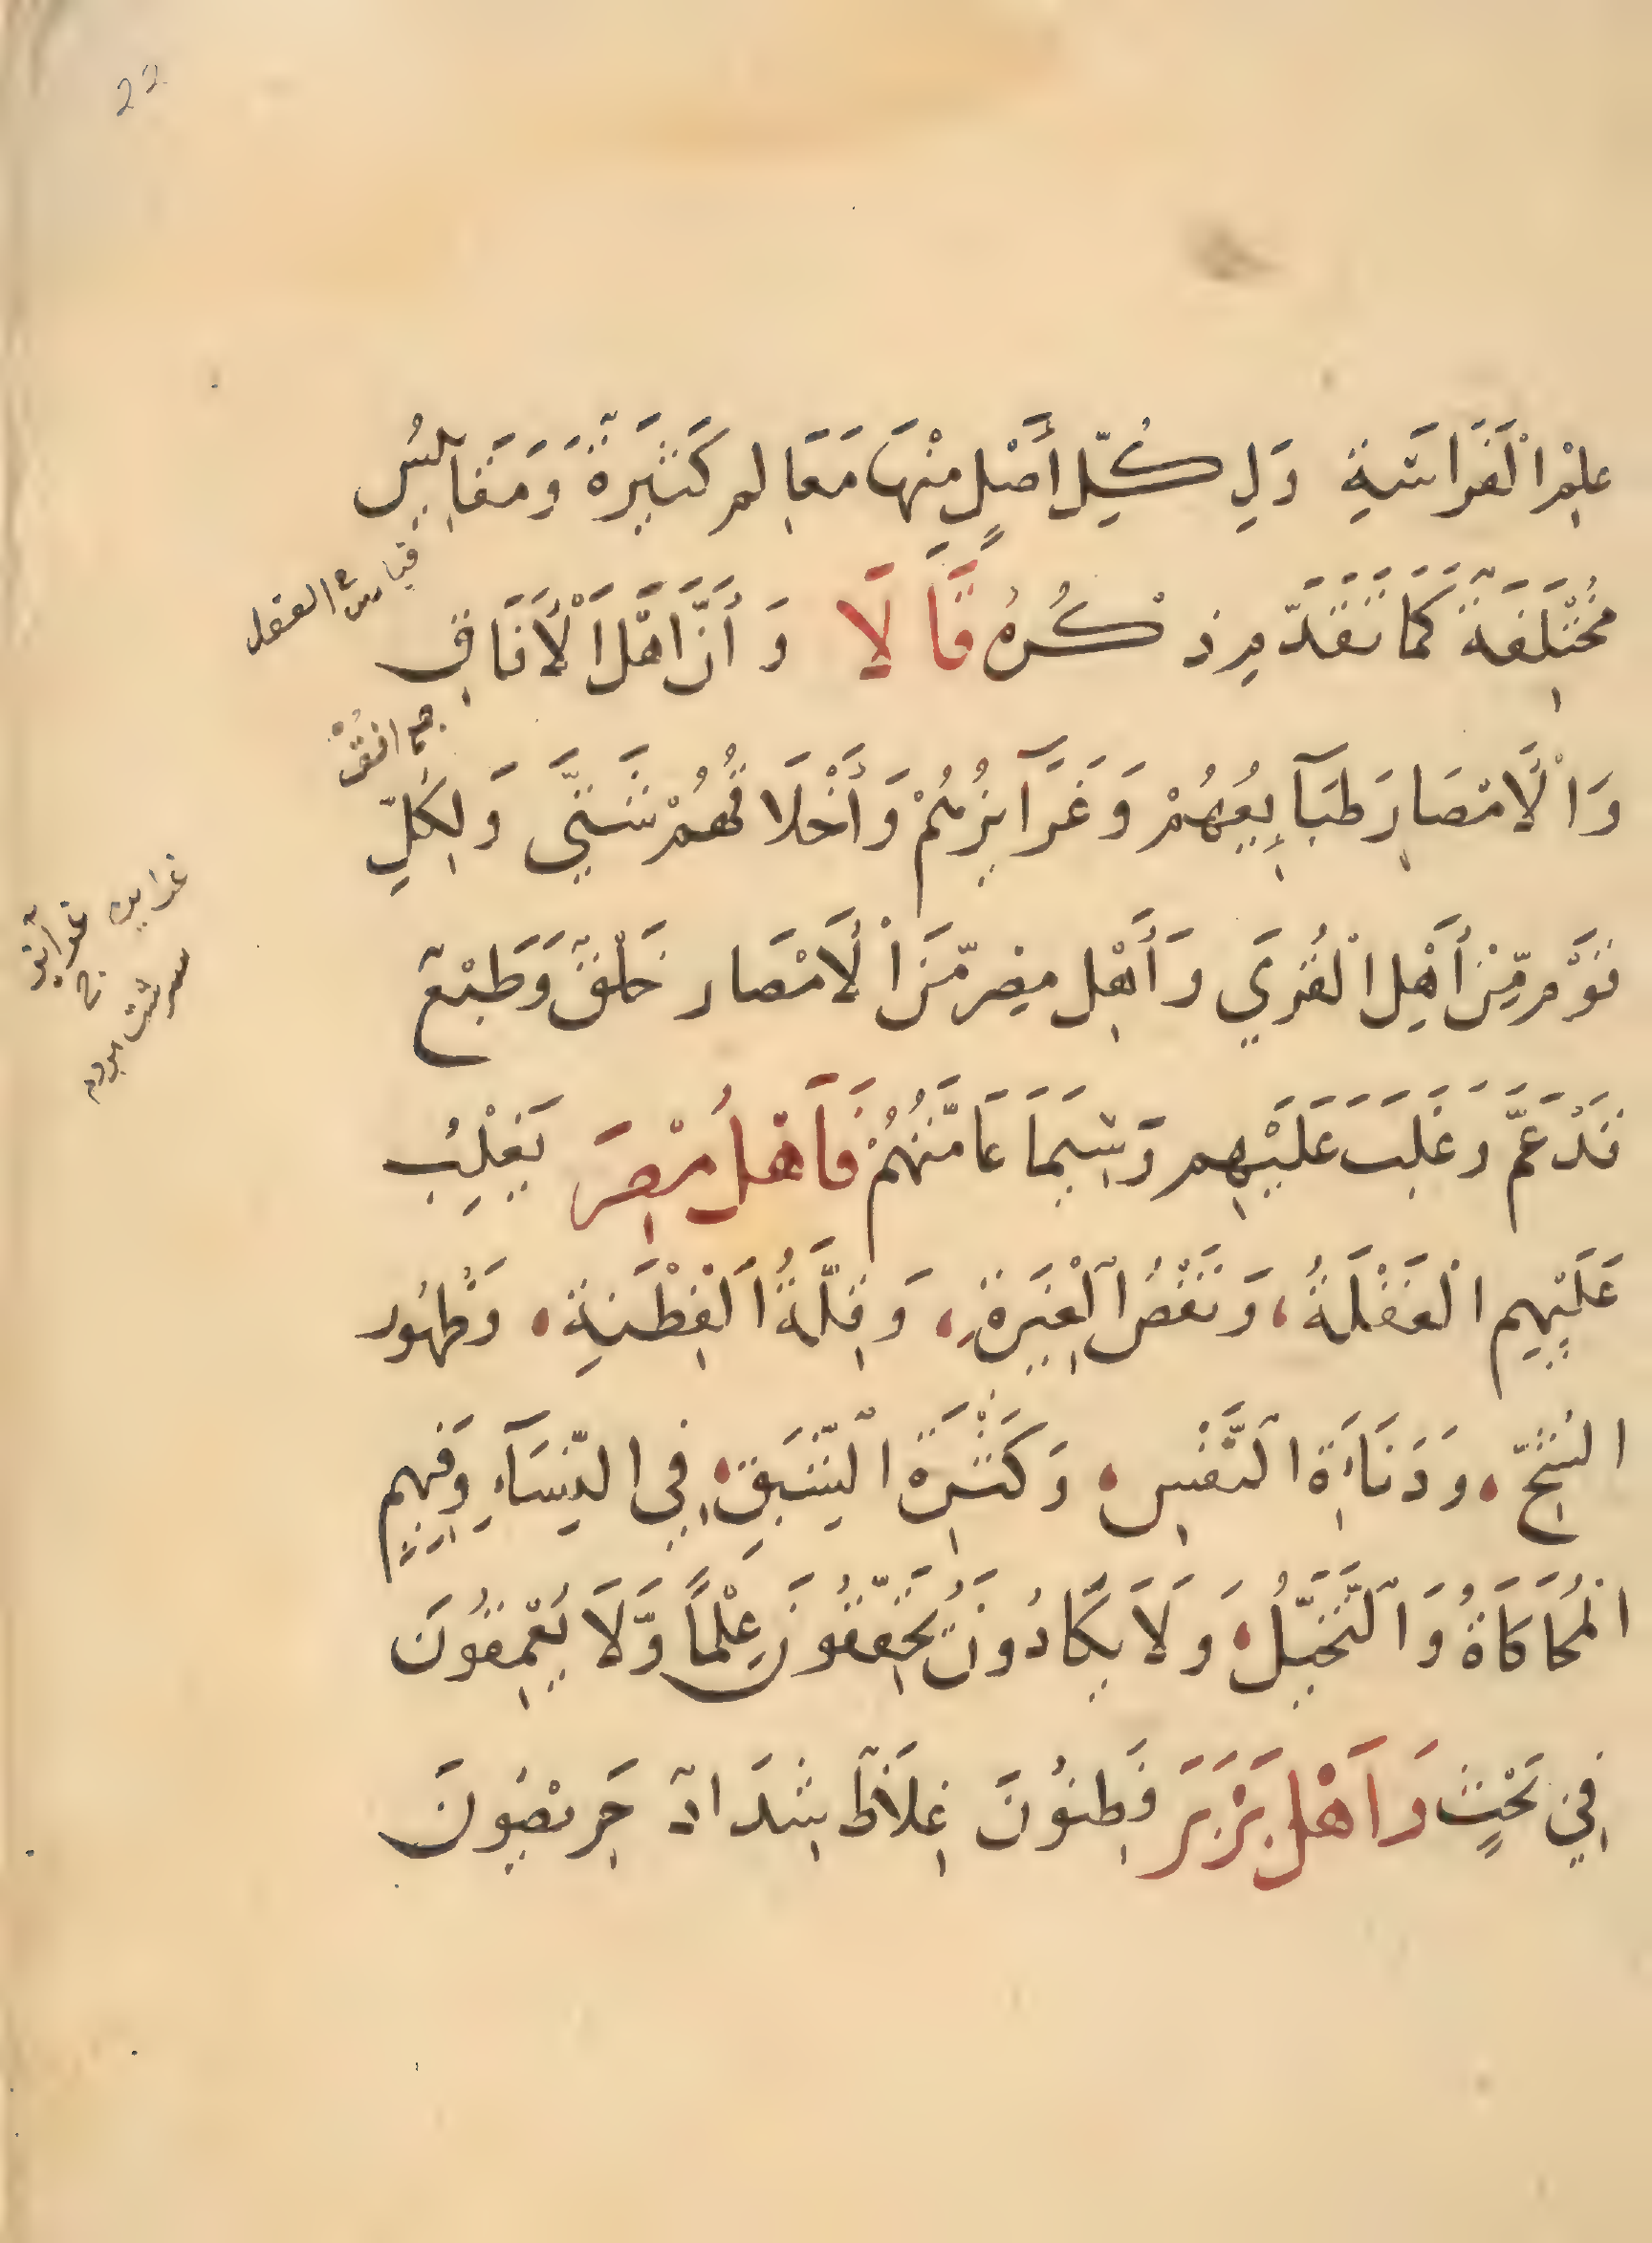 22
عِلْمِ الْفَرَاسَةِ وَلِكُلِّ أَصْلٍ مِنْهَا مَعَالِم كَثِيرَةٌ وَمَقَايِيسُ
قياس ج العقل
مُخْتَلِفَةٌ كَمَا تَقَدَّم ذِكْرُهُ قَالَا وَأَنَّ اَهْلَ الْأَفَاقِ
جمع افق
وَالْأَمْصَارِ طَبَآيِعُهُمْ وَغَرَآيِزُهُمْ وَأَخْلَاقُهُمْ شَتَّي وَلِكُلِّ
غرايز
غرآيز
ج
سرشت مردم
قَوْمٍ مِّنْ أَهْلِ الْقُرَي وَأَهْلِ مِصْرٍ مِّنَ الْأَمْصَار خَلْقٌ وَطَبْعٌ
قَدْ عَمَّ وَغَلَبَ عَلَيْهِم وَسِيمَا عَامَّتُهُمْ فَأَهْلُ مِصْرَ يَغْلِبُ
عَلَيْهِم الْغَفْلَةُ، وَنَقْصُ الْغِيَرَةِ، وَقِلَّةُ الْفِطْنَةِ، وَظُهُور
الشُّحِّ، وَدَنَاءَةُ النَّفْسِ، وَكَثْرَةُ الشَّبَقِ، فِي النِّسَآءِ وَفِيهِم
الْمُحَاكَاةُ وَالتَّخَيُّلُ، وَلَا يَكَادُونَ يُحَقِّقُونَ عِلْمًا وَّلَا يُعْمِقُونَ
فِي بَحْثٍ وَاَهْل بَرْبَرَ فَطِنُونَ غِلَاظٌ شِدَادٌ حَرِيصُونَ